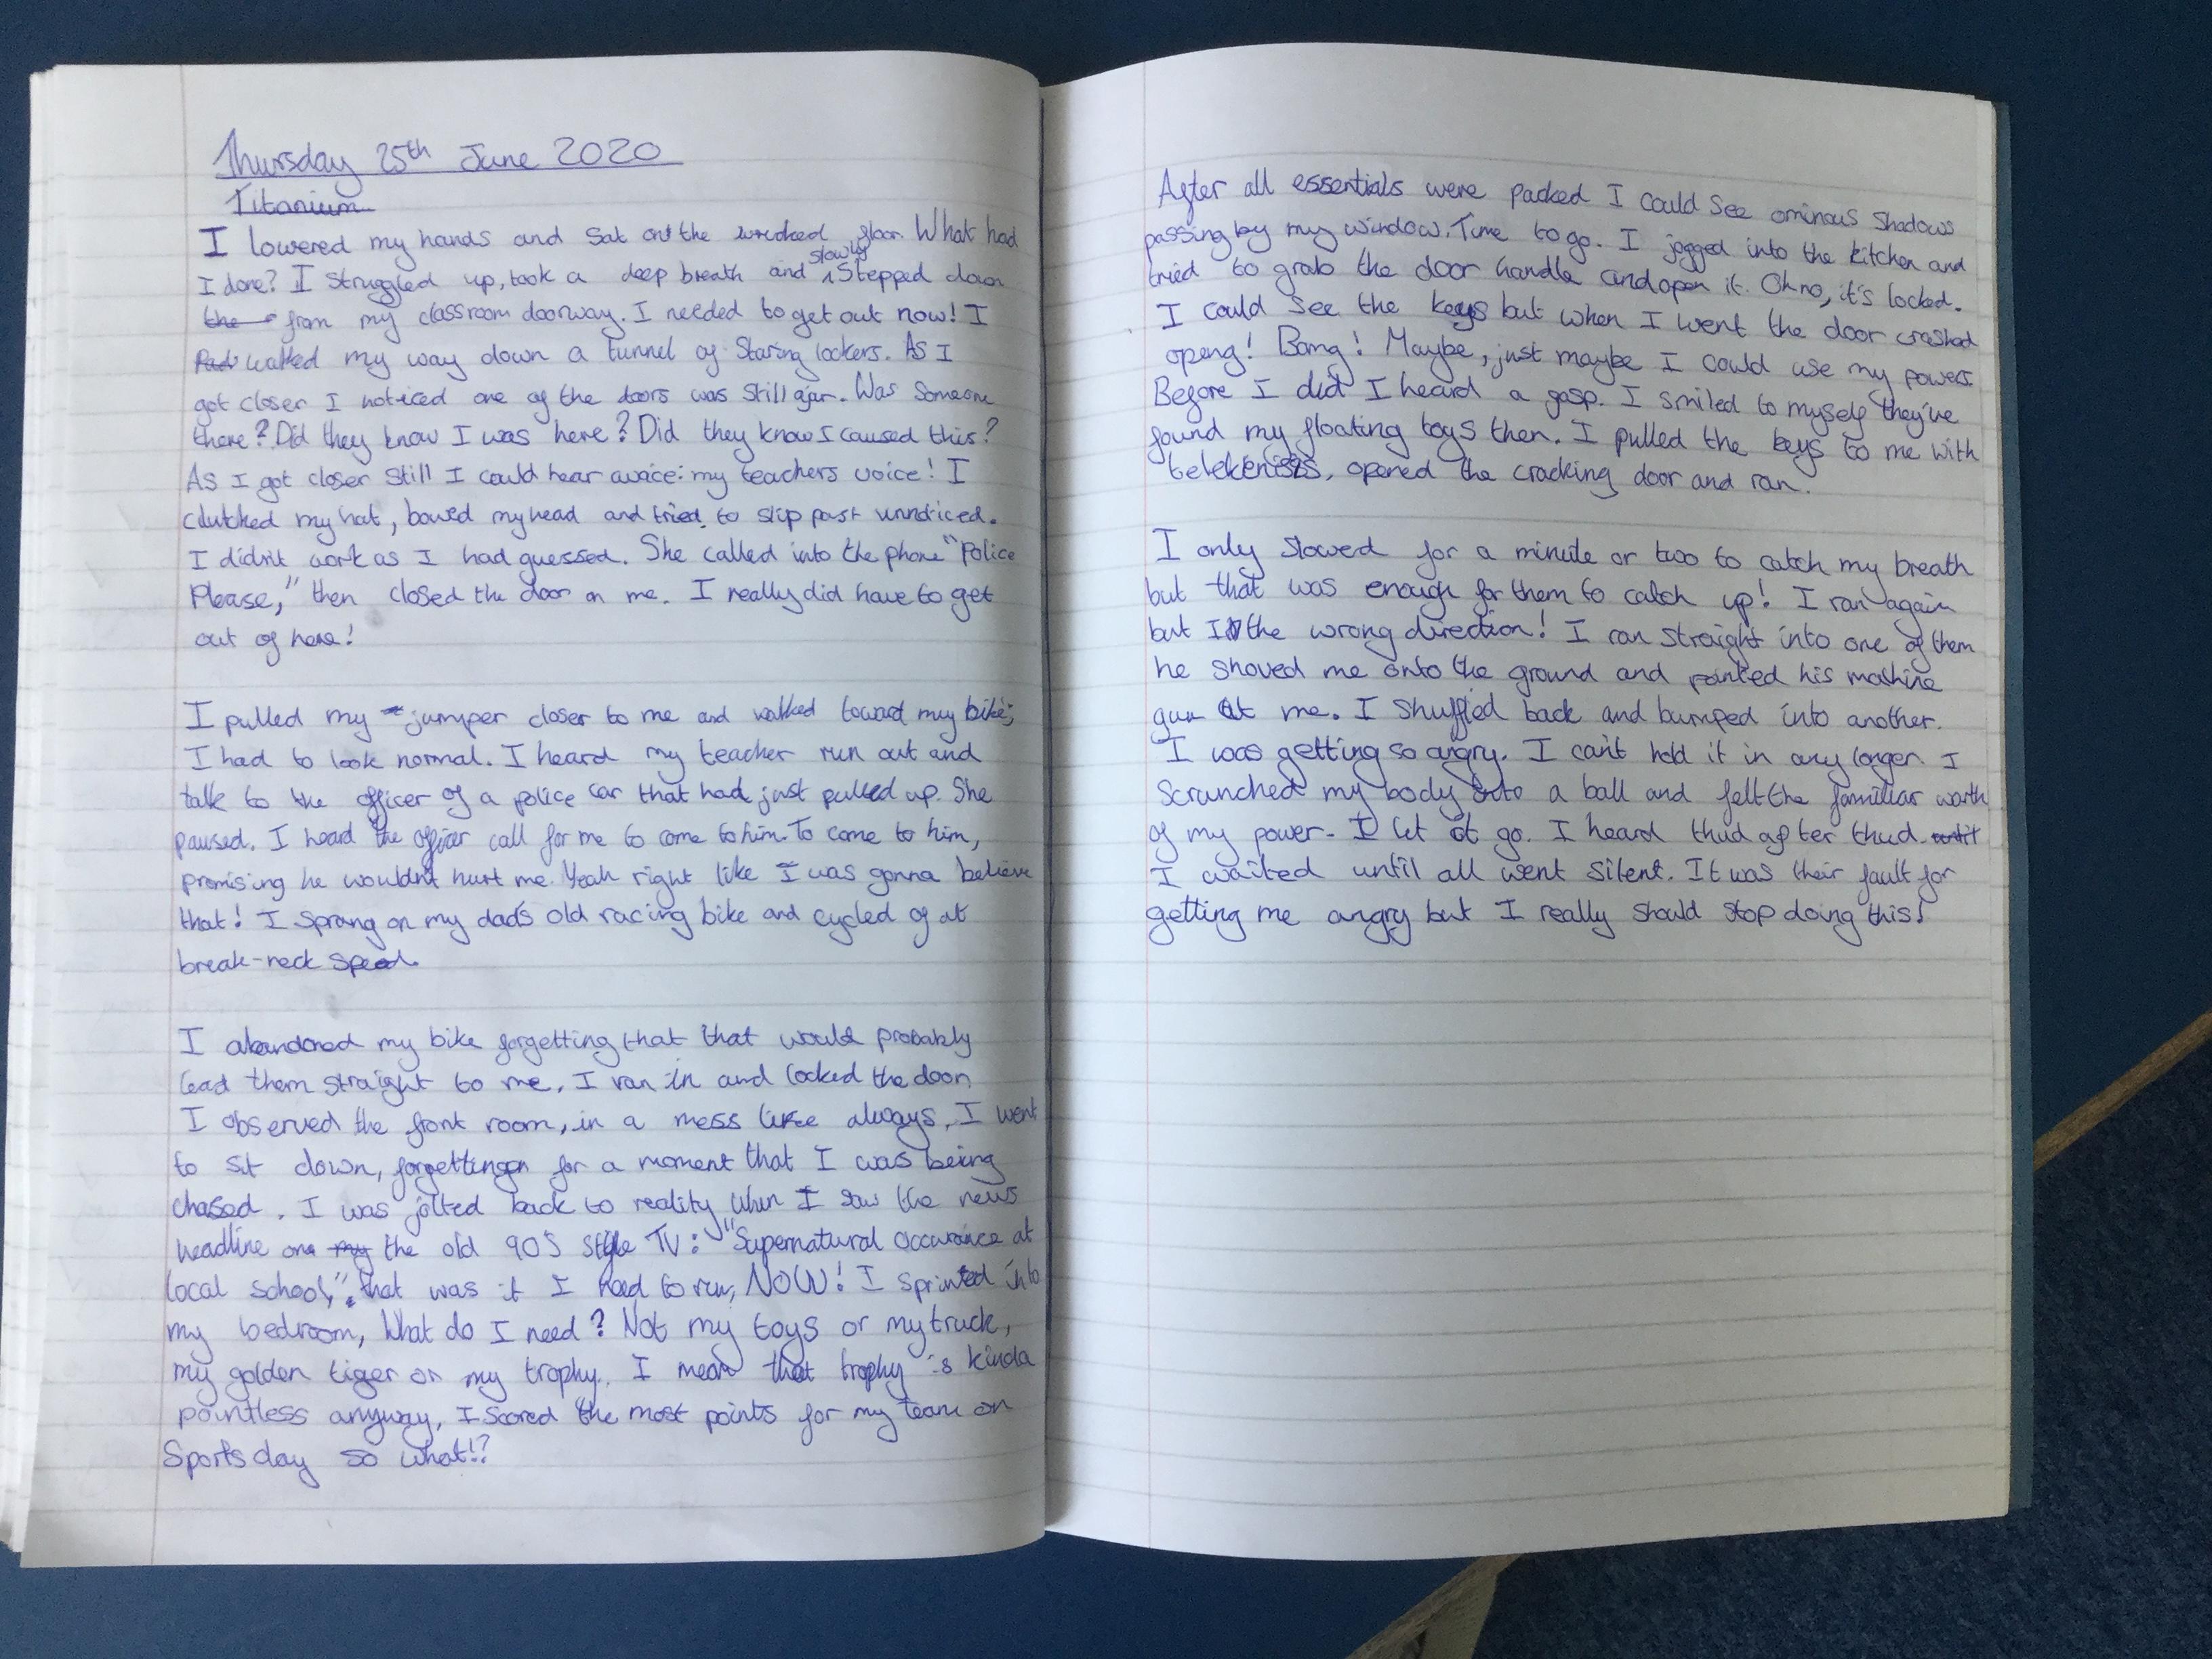 Thursday 25th June 2020
Titanium
I lowered my hands and sat on the wrecked floor. What had
I done? I struggled up, took a deep breath and slowly stepped down
the from my classroom doorway. I needed to get out now! I
walked my way down a tunnel of staring lockers. As I
got closer I noticed one of the doors was still ajar. Was someone
there? Did they know I was here? Did they know I caused this?
As I got closer still I could hear a voice: my teachers voice! I
clutched my hat, bowed my head and tried to slip past unnoticed.
I didn't work as I had guessed. She called into the phone "Police
Please," then closed the door on me. I really did have to get
out of here!
I pulled my jumper closer to me and walked toward my bike;
I had to look normal. I heard my teacher run out and
talk to the officer of a police car that had just pulled up. She
paused. I heard the officer call for me to come to him. To come to him,
promising he wouldn't hurt me. Yeah right like I was gonna believe
that! I sprang on my dad's old racing bike and cycled of at
break-neck speed.
I abandoned my bike forgetting that that would probably
lead them straight to me. I ran in and locked the door.
I observed the front room, in a mess like always. I went
to sit down, forgetting for a moment that I was being
chased. I was jolted back to reality when I saw the news
headline on my the old 90s style TV: "Supernatural occurance at
local school," that was it I had to run, NOW! I sprinted into
my bedroom, What do I need? Not my toys or my truck,
my golden tiger or my trophy. I mean that trophy is kinda
pointless anyway, I scored the most points for my team on
Sports day so what!?
After all essentials were packed I could see ominous shadows
passing by my window. Time to go. I jogged into the kitchen and
tried to grab the door handle and open it. Oh no, it's locked.
I could see the keys but when I went the door crashed
openg! Bang! Maybe, just maybe I could use my powers
Before I did I heard a gasp. I smiled to myself they've
found my floating toys then. I pulled the keys to me with
telekenisis, opened the cracking door and ran.
I only slowed for a minute or two to catch my breath
but that was enough for them to catch up! I ran again
but In the wrong direction! I ran straight into one of them
he shoved me onto the ground and pointed his machine
gun at me. I shuffled back and bumped into another.
I was getting so angry. I can't hold it in any longer. I
scrunched my body into a ball and felt the familiar warth
of my power. I let it go. I heard thud after thud. until
I waited until all went silent. It was their fault for
getting me angry but I really should stop doing this!